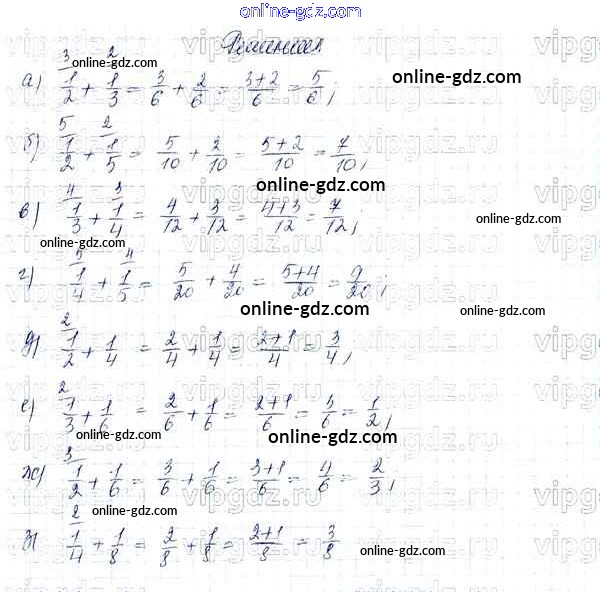 online-gdz.com
Решение
а) 3/ 2/ 1/2 + 1/3 = 3/6 + 2/6 = (3+2)/6 = 5/6; online-gdz.com
б) 5/ 2/ 1/2 + 1/5 = 5/10 + 2/10 = (5+2)/10 = 7/10;
online-gdz.com
в) 4/ 3/ 1/3 + 1/4 = 4/12 + 3/12 = (4+3)/12 = 7/12; online-gdz.com
online-gdz.com
г) 5/ 4/ 1/4 + 1/5 = 5/20 + 4/20 = (5+4)/20 = 9/20;
online-gdz.com
д) 2/ 1/2 + 1/4 = 2/4 + 1/4 = (2+1)/4 = 3/4;
е) 2/ 1/3 + 1/6 = 2/6 + 1/6 = (2+1)/6 = 3/6 = 1/2;
online-gdz.com online-gdz.com
ж) 3/ 1/2 + 1/6 = 3/6 + 1/6 = (3+1)/6 = 4/6 = 2/3;
online-gdz.com online-gdz.com
з) 2/ 1/4 + 1/8 = 2/8 + 1/8 = (2+1)/8 = 3/8
online-gdz.com